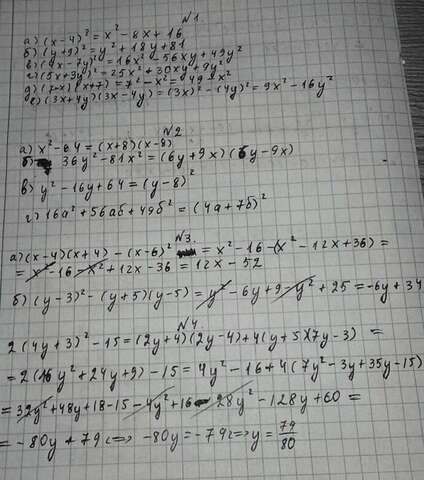 №1
а) (x-4)² = x² - 8x + 16
б) (y+9)² = y² + 18y + 81
в) (4x-7y)² = 16x² - 56xy + 49y²
г) (5x+3y)² = 25x² + 30xy + 9y²
д) (7-x)(x+7) = 7² - x² = 49 - x²
е) (3x+4y)(3x-4y) = (3x)² - (4y)² = 9x² - 16y²
№2
а) x² - 64 = (x+8)(x-8)
б) 36y² - 81x² = (6y+9x)(6y-9x)
в) y² - 16y + 64 = (y-8)²
г) 16a² + 56aб + 49б² = (4a+7б)²
№3.
а) (x-4)(x+4) - (x-6)² = x² - 16 - (x² - 12x + 36) =
= x² - 16 - x² + 12x - 36 = 12x - 52
б) (y-3)² - (y+5)(y-5) = y² - 6y + 9 - y² + 25 = -6y + 34
№4
2(4y+3)² - 15 = (2y+4)(2y-4) + 4(y+5)(7y-3) =
= 2(16y² + 24y + 9) - 15 = 4y² - 16 + 4(7y² - 3y + 35y - 15)
= 32y² + 48y + 18 - 15 - 4y² + 16 - 28y² - 128y + 60 =
= -80y + 79 <=> -80y = -79 <=> y = 79/80